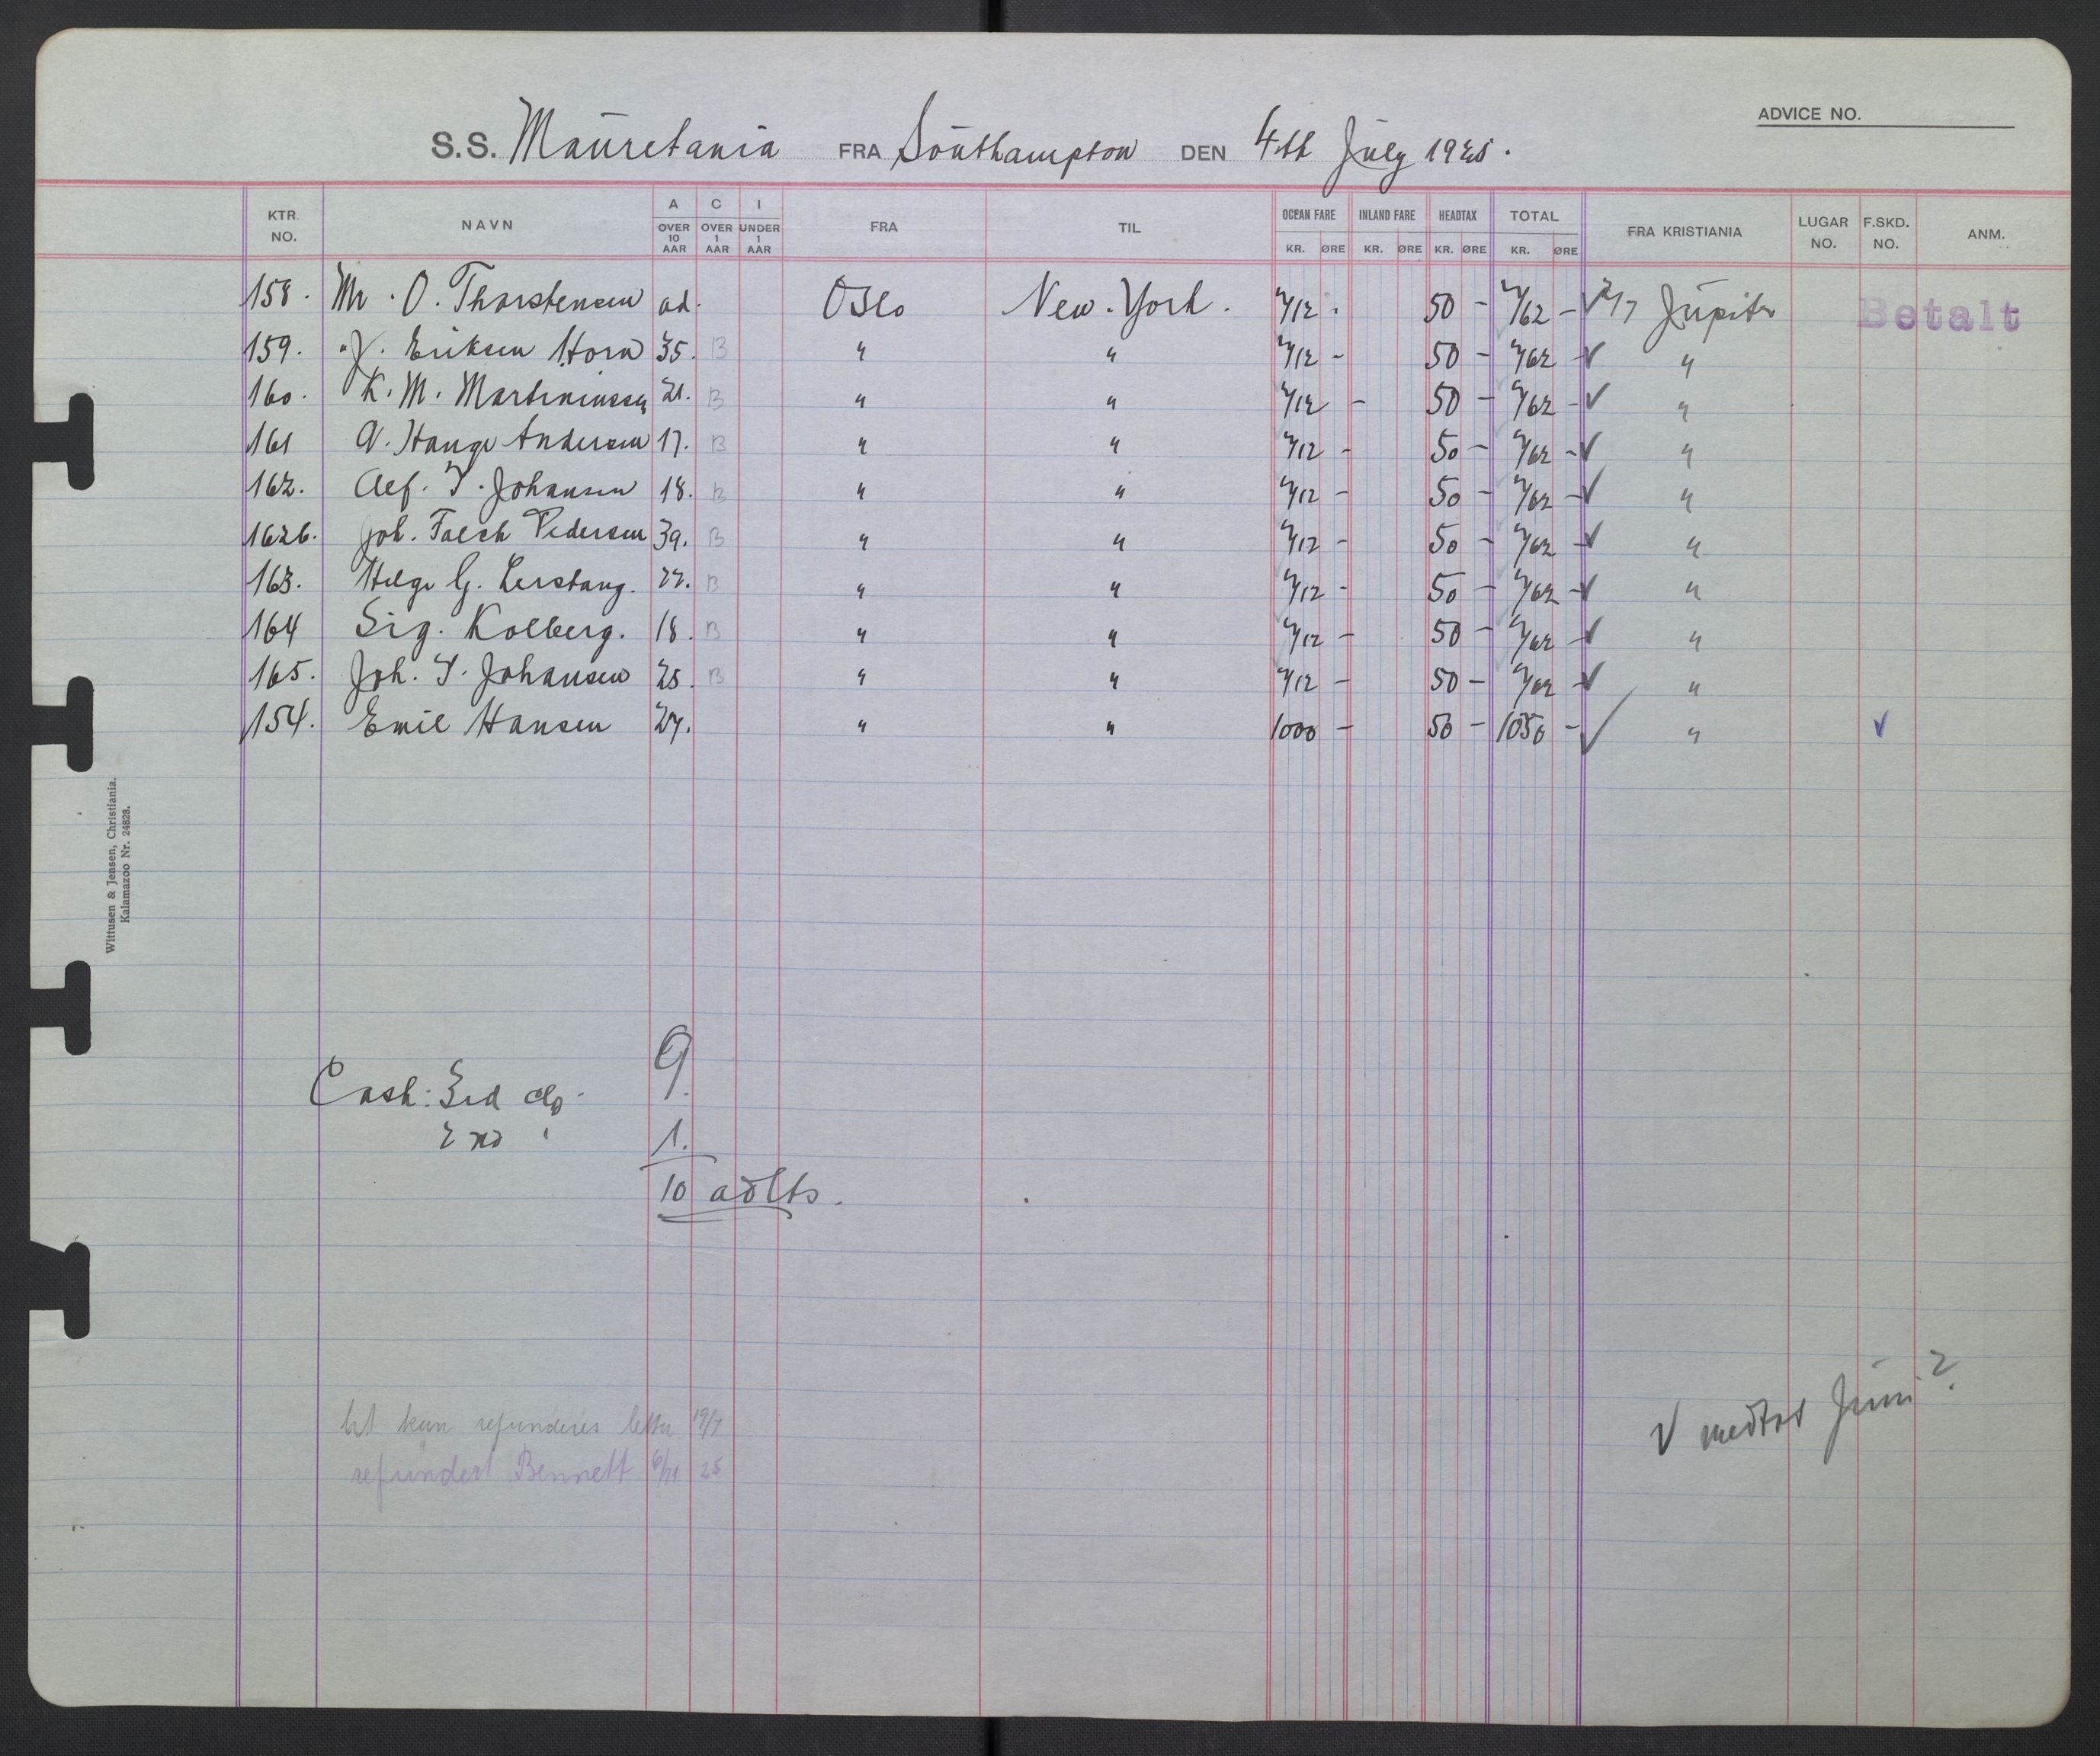 ADVICE NO.
S.S. Mauretania FRA Southampton DEN 4th July 1925.
KTR. NO. NAVN A OVER 10 AAR C OVER 1 AAR I UNDER 1 AAR FRA TIL OCEAN FARE KR. ØRE INLAND FARE KR. ØRE HEADTAX KR. ØRE TOTAL KR. ØRE FRA KRISTIANIA LUGAR NO. F.SKD. NO. ANM.
158. Mr. O. Thorstensen ad. Oslo New-York. 712. 50 - 762 - ✓ 2/7 Jupiter Betalt
159. " J. Eriksen Horn 35. B " " 712 - 50 - 762 - ✓ "
160. K. M. Martiniussen 21. B " " 712 - 50 - 762 - ✓ "
161 A. Hauge Andersen 17. B " " 712 - 50 - 762 - ✓ "
162. Alf. T. Johansen 18. B " " 712 - 50 - 762 - ✓ "
162b. Joh. Falch Pedersen 39. B " " 712 - 50 - 762 - ✓ "
163. Helge G. Lerstang. 22. B " " 712 - 50 - 762 - ✓ "
164 Sig. Kolberg. 18. B " " 712 - 50 - 762 - ✓ "
165. Joh. T. Johansen 25. B " " 712 - 50 - 762 - ✓ "
154. Emil Hansen 27. " " 1000 - 50 - 1050 - ✓ " ✓
Wittusen & Jensen, Christiania.
Kalamazoo Nr. 24828.
Cash: 3rd cl. 9.
2nd " 1.
10 adlts.
V medtat Juni?
kan refunderes letter 19/7
refundert Bennett 6/11 25